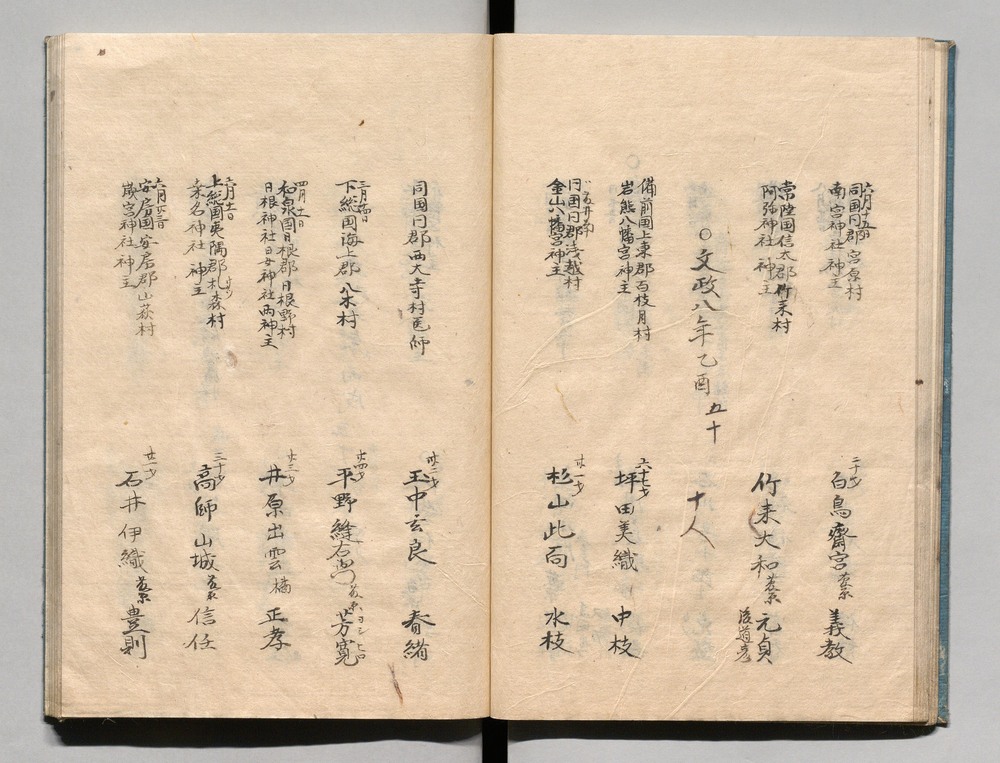 六月十五日
同国同郡宮原村
南宮神社神主
二十才
白鳥齋宮 藤原 義教
常陸国信太郡竹来村
阿弥神社神主
竹来大和 藤原 元貞
後道彦
○文政八年乙酉 五十
十人
備前国上東郡百枝月村
岩熊八幡宮神主
六十七才
坪田美織 中枝
同国同郡浅越村
金山八幡宮神主
廿一才
杉山此面 水枝
同国同郡西大寺村医師
廿二才
玉中玄良 春緒
三月四日
下総国海上郡八木村
廿四才
平野縫右衛門 藤原 芳寛
四月十一日
和泉国日根郡日根野村
日根神社日女神社両神主
廿三才
井原出雲 橘 正孝
六月十二日
上総国夷隅郡札森村
桒名神社神主
三十才
高師山城 藤原 信任
六月廿二日
安房国安房郡山荻村
歳宮神社神主
廿一才
石井伊織 藤原 豊則